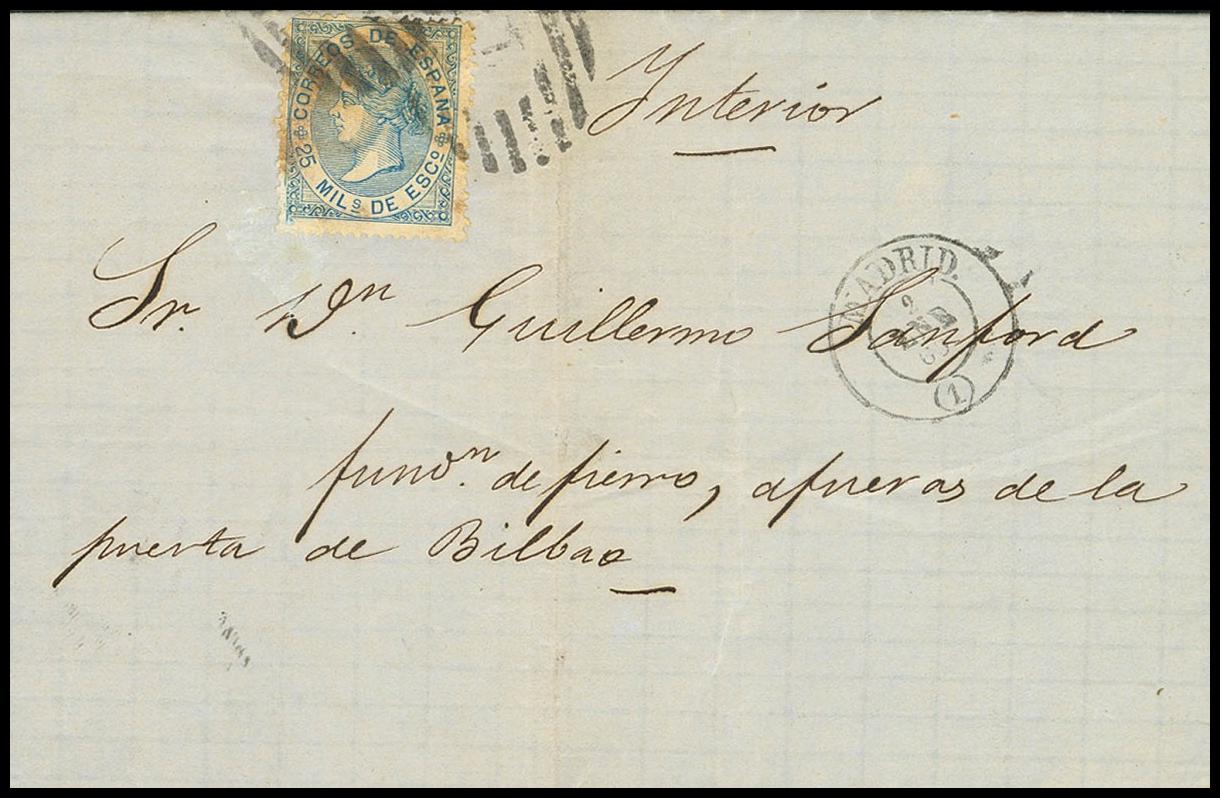 CORREOS DE ESPAÑA
25 MILs DE ESCo
Interior
MADRID.
2
ENE
(1)
Sr. Dn. Guillermo Sanford
fundn. de fierro, afueras de la
puerta de Bilbao